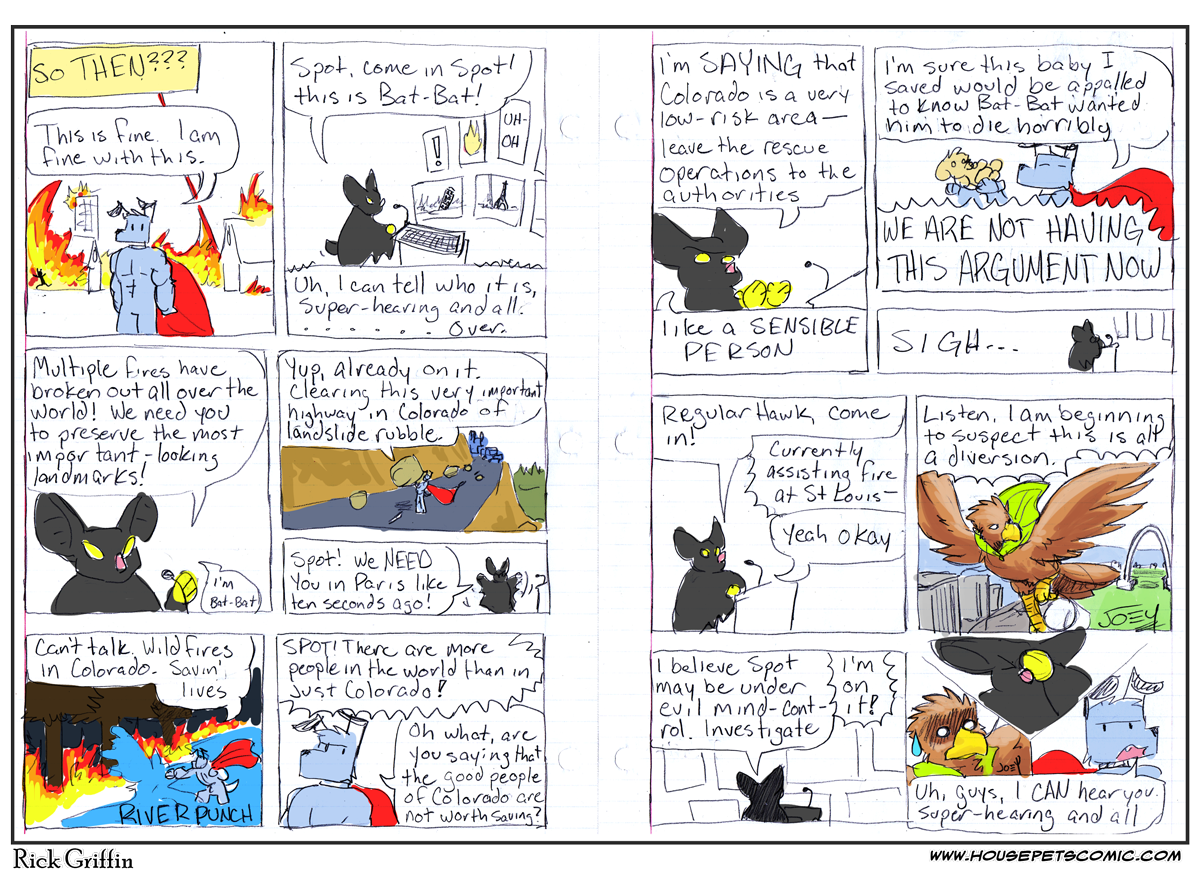 SO THEN???
This is fine. I am
fine with this.
Spot, come in Spot!
this is Bat-Bat!
!
UH-
OH
Uh, I can tell who it is,
super-hearing and all.
. . . . . . Over.
Multiple fires have
broken out all over the
world! We need you
to preserve the most
important-looking
landmarks!
I'm
Bat-Bat
Yup, already on it.
Clearing this very important
highway in Colorado of
landslide rubble.
Spot! We NEED
you in Paris like
ten seconds ago!
Can't talk. Wildfires
in Colorado. Savin'
lives
RIVER PUNCH
SPOT! There are more
people in the world than in
just Colorado!
Oh what, are
you saying that
the good people
of Colorado are
not worth saving?
I'm SAYING that
Colorado is a very
low-risk area—
leave the rescue
operations to the
authorities
like a SENSIBLE
PERSON
I'm sure this baby I
saved would be appalled
to know Bat-Bat wanted
him to die horribly
WE ARE NOT HAVING
THIS ARGUMENT NOW
SIGH...
Regular Hawk, come
in!
Currently
assisting fire
at St Louis—
Yeah okay
Listen, I am beginning
to suspect this is all
a diversion.
JOEY
I believe Spot
may be under
evil mind-cont-
rol. Investigate
I'm
on
it!
JOEY
Uh, guys, I CAN hear you.
Super-hearing and all
Rick Griffin
WWW.HOUSEPETSCOMIC.COM